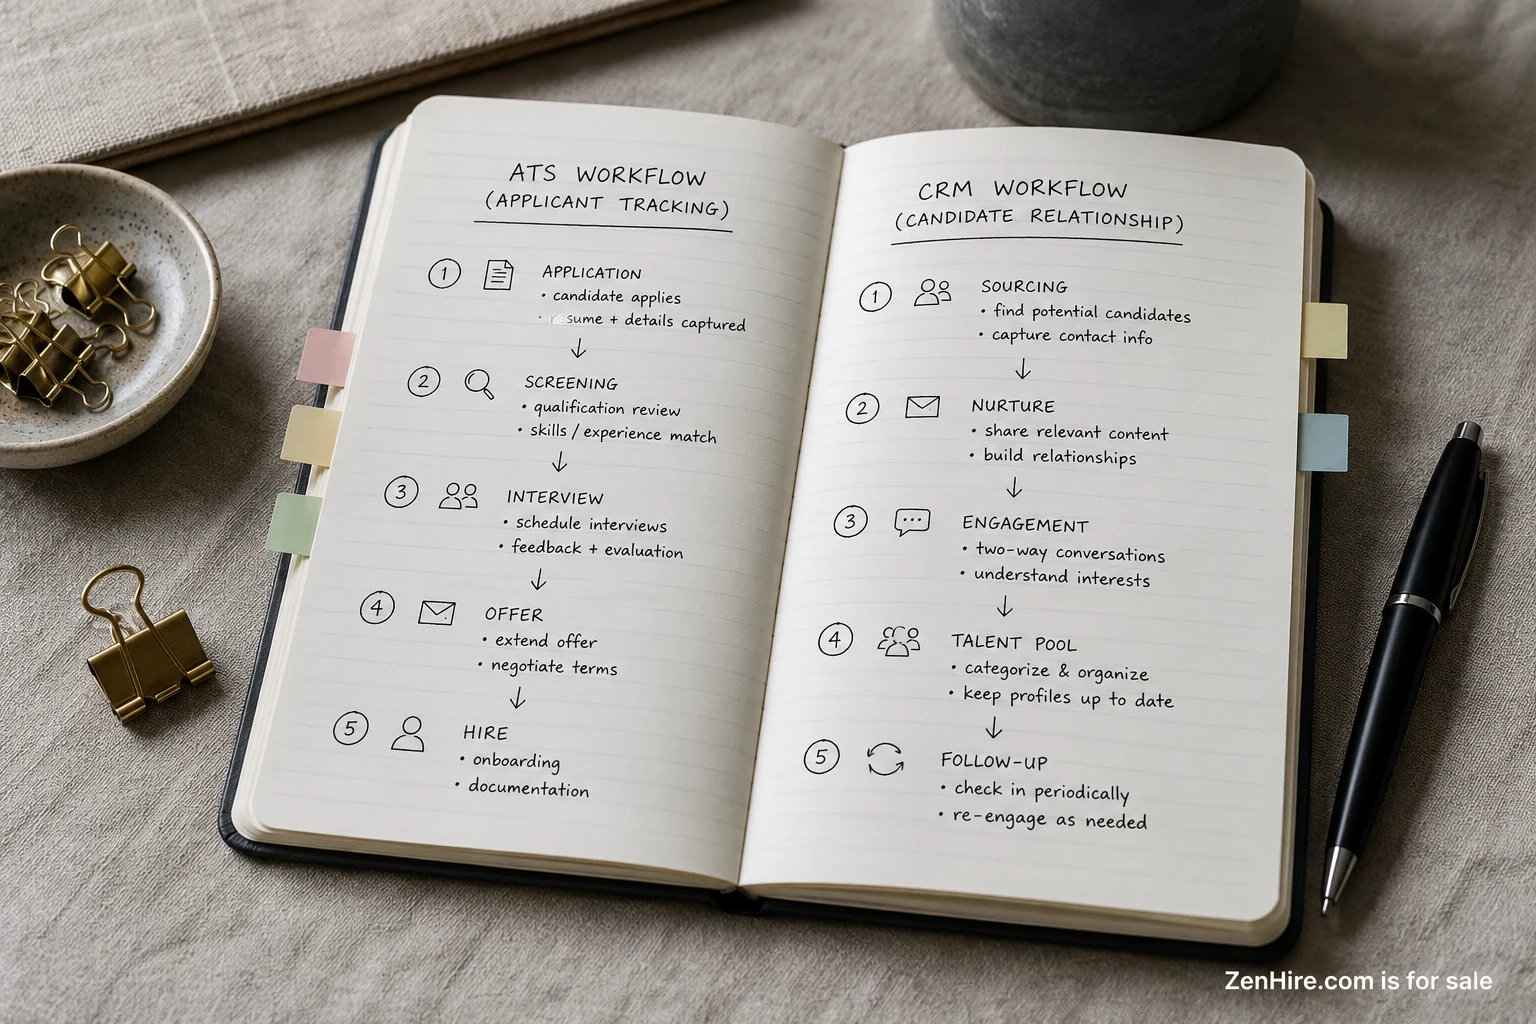 ATS WORKFLOW
(APPLICANT TRACKING)
1 APPLICATION
• candidate applies
• resume + details captured
2 SCREENING
• qualification review
• skills / experience match
3 INTERVIEW
• schedule interviews
• feedback + evaluation
4 OFFER
• extend offer
• negotiate terms
5 HIRE
• onboarding
• documentation
CRM WORKFLOW
(CANDIDATE RELATIONSHIP)
1 SOURCING
• find potential candidates
• capture contact info
2 NURTURE
• share relevant content
• build relationships
3 ENGAGEMENT
• two-way conversations
• understand interests
4 TALENT POOL
• categorize & organize
• keep profiles up to date
5 FOLLOW-UP
• check in periodically
• re-engage as needed
ZenHire.com is for sale